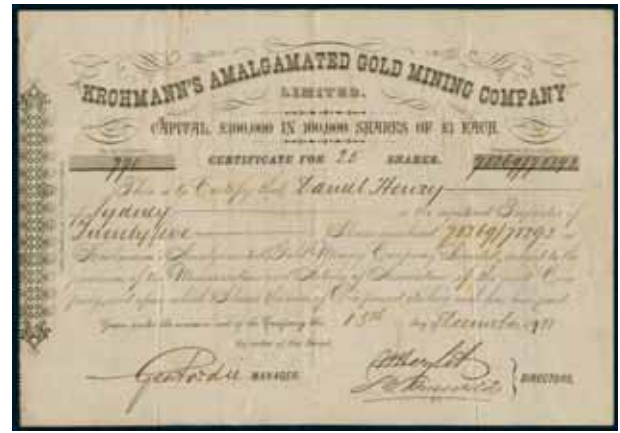 KROHMANN'S AMALGAMATED GOLD MINING COMPANY
LIMITED.
CAPITAL £100,000 IN 100,000 SHARES OF £1 EACH.
CERTIFICATE FOR 25 SHARES.
This is to Certify that Daniel Henry
of Sydney is the registered Proprietor of
Twenty five Shares numbered 78269/78293
Krohmann's Amalgamated Gold Mining Company Limited, subject to the
provisions of the Memorandum and Articles of Association of the said
upon which Shares the sum of One pound sterling each has been paid
Given under the common seal of the Company this 13th day of December
By order of the Board.
MANAGER.
DIRECTORS.